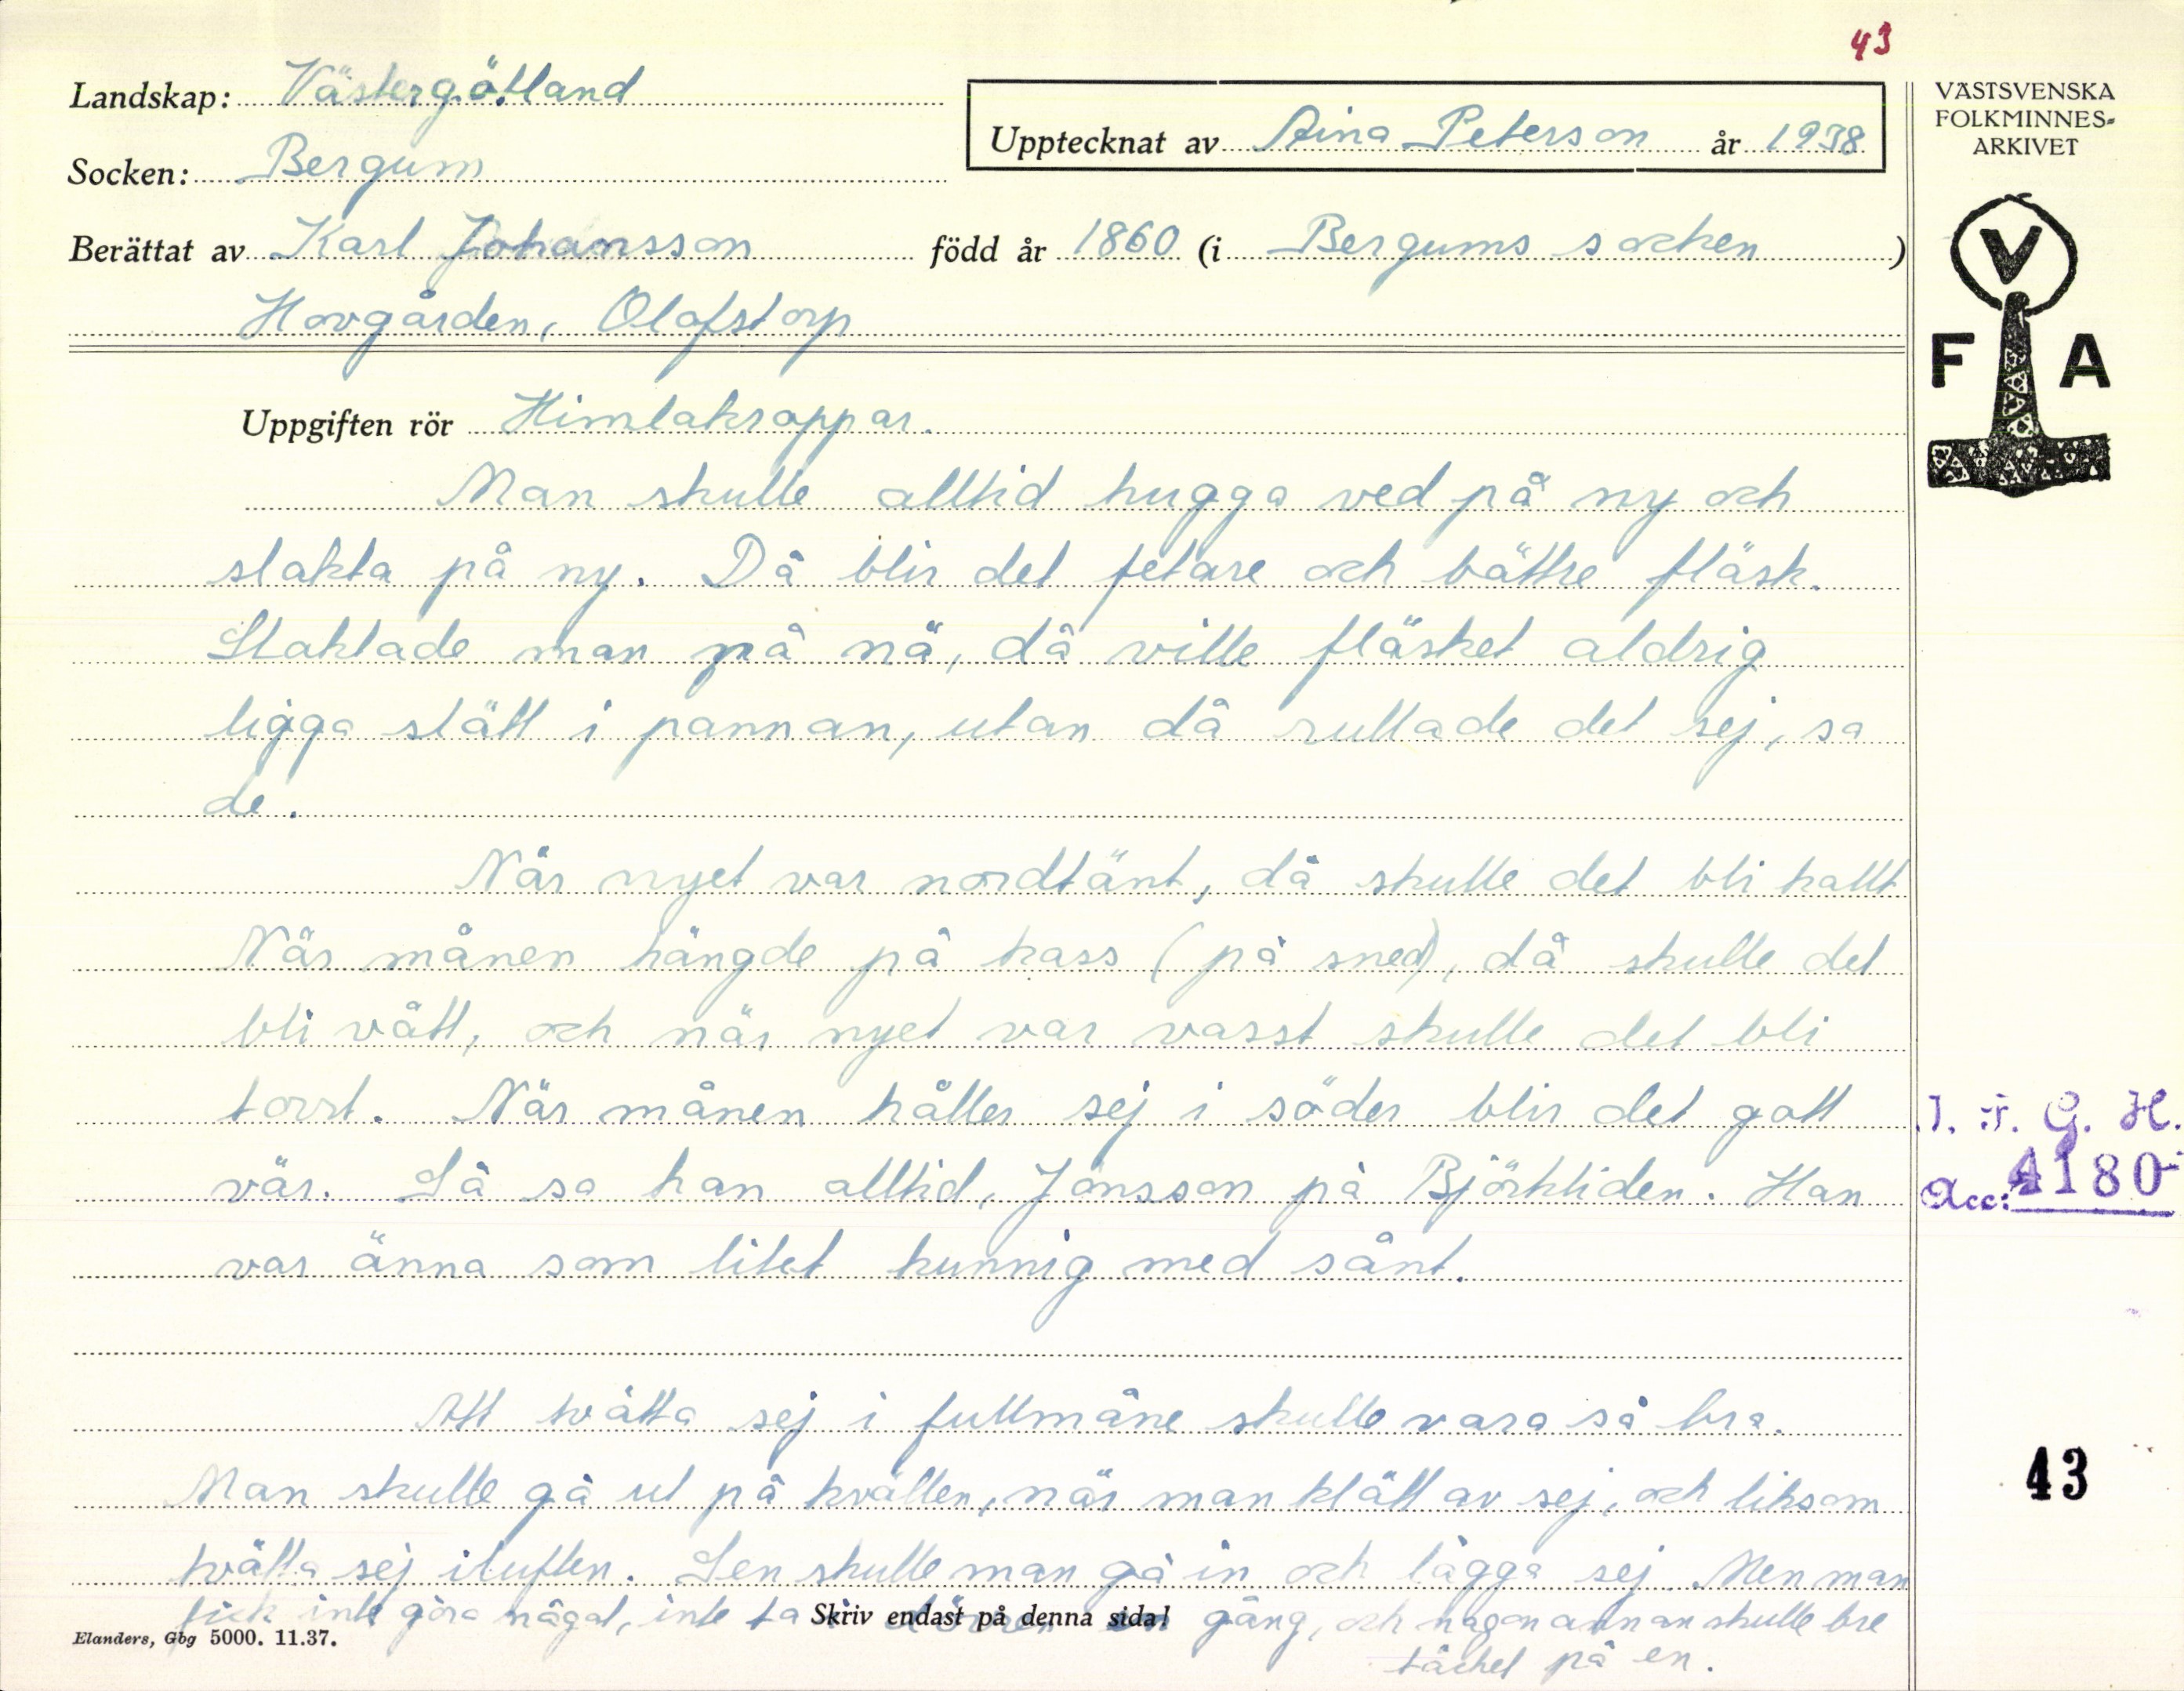 43
Landskap: Västergötland
Socken: Bergum
Upptecknat av Aina Peterson år 1938
Berättat av Karl Johansson född år 1860 (i Bergums socken)
Hovgården, Olofstorp
VÄSTSVENSKA
FOLKMINNES-
ARKIVET
V
F A
Uppgiften rör Himlakroppar.
Man skulle alltid hugga ved på ny och
slakta på ny. Då blir det fetare och bättre fläsk.
Slaktade man på nä, då ville fläsket aldrig
ligga slätt i pannan, utan då rullade det sej, sa
de.
När nyet var nordtänt, då skulle det bli kallt
När månen hängde på kass (på sned), då skulle det
bli vått, och när nyet var vasst skulle det bli
torrt. När månen håller sej i söder blir det gott
vär. Så sa han alltid, Jonsson på Björkliden. Han
var änna som litet kunnig med sånt.
Att tvätta sej i fullmåne skulle vara så bra.
Man skulle gå ut på kvällen, när man klätt av sej, och liksom
tvätta sej i luften. Sen skulle man gå in och lägga sej. Men man
fick inte göra något, inte ta i dörren en gång, och någon annan skulle bre
täcket på en.
Skriv endast på denna sida!
Elanders, Gbg 5000. 11.37.
I. F. G. H.
Acc: 4180
43